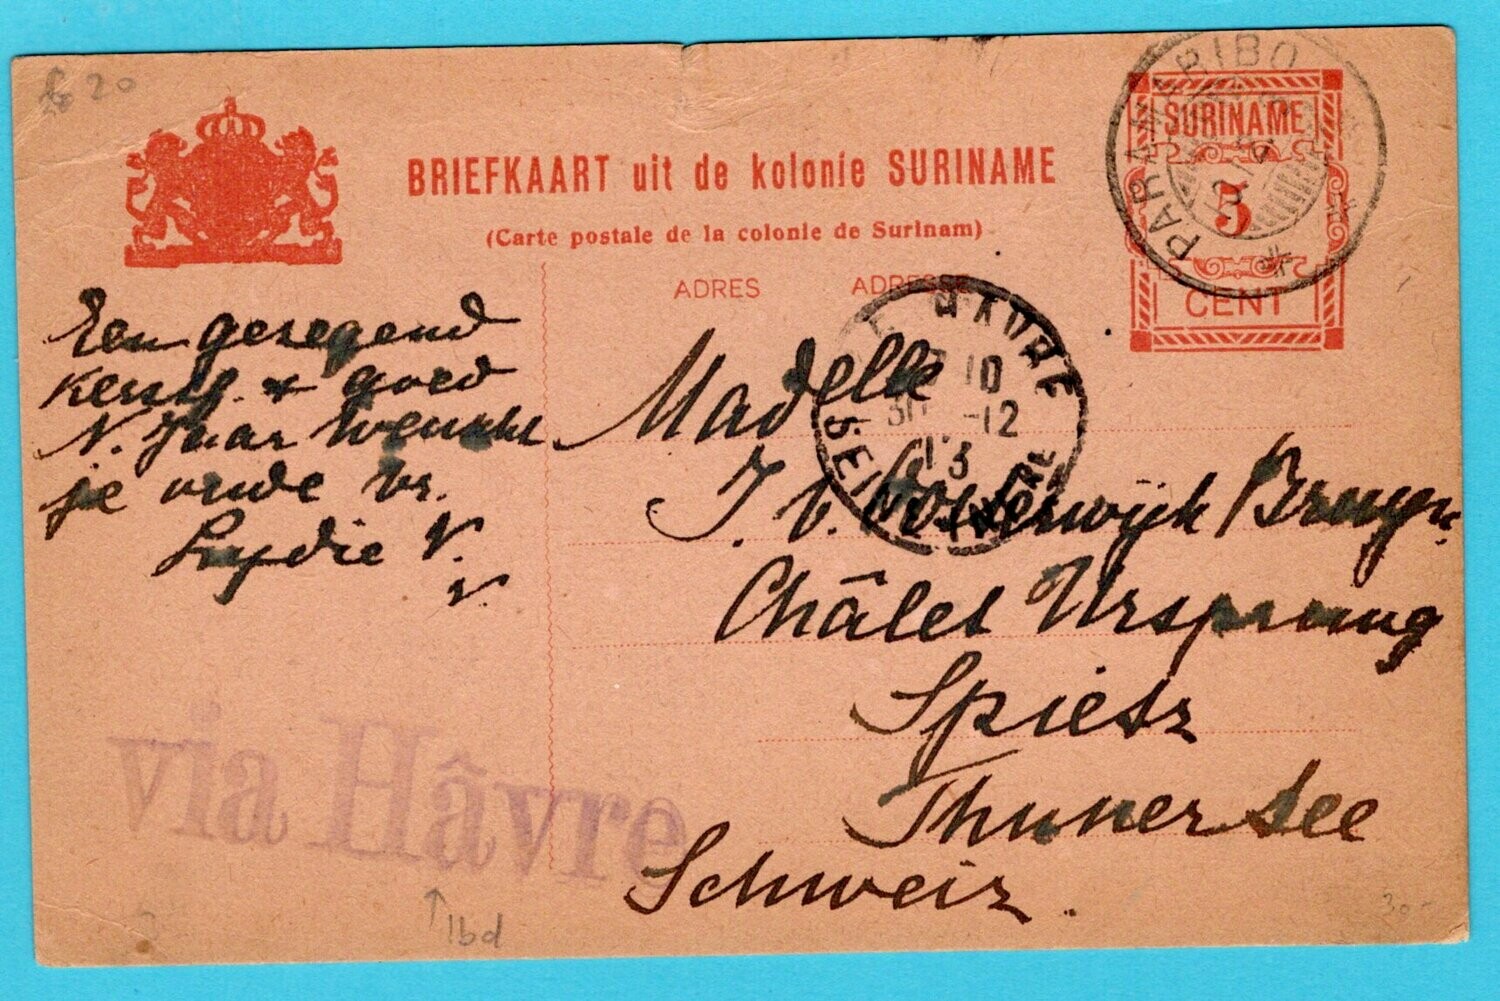 20
BRIEFKAART uit de kolonie SURINAME
(Carte postale de la colonie de Surinam)
ADRES ADRESSE
SURINAME
5
CENT
PARAMARIBO
LE HAVRE
7 10
30 -12
13
SEINE INFRE
Een gezegend
Kerstf. + goed
N. Jaar wenscht
je oude vr.
Lydie V.
v.
Madelle
J. v. Oosterwijk Bruyn
Châlet Ursprung
Spietz
Thuner See
Schweiz.
via Hâvre
lbd
30